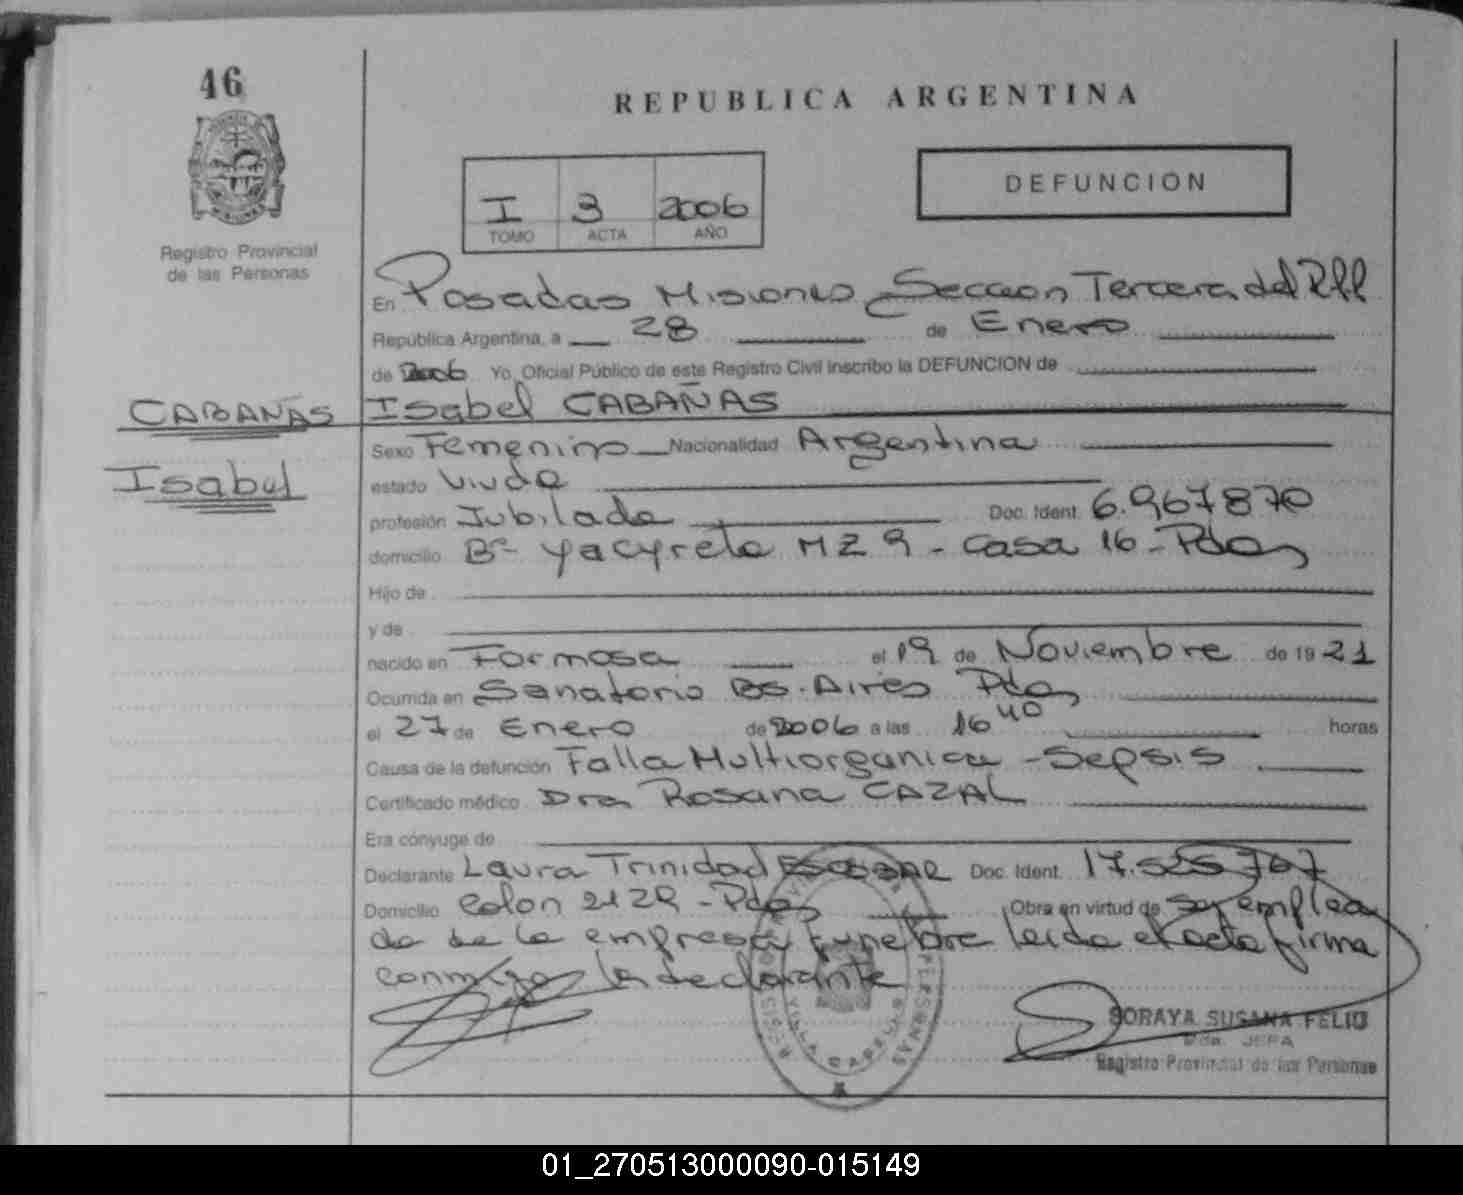 46
REPUBLICA ARGENTINA
DEFUNCION
I 3 2006
TOMO ACTA AÑO
Registro Provincial
de las Personas
En Posadas Misiones Seccion Tercera del
República Argentina, a 28 de Enero
de 2006 Yo, Oficial Público de este Registro Civil inscribo la DEFUNCION de
CABAÑAS Isabel CABAÑAS
Sexo Femenino Nacionalidad Argentina
Isabel
estado Viuda
profesión Jubilada Doc. Ident. 6.967870
domicilio Bº Yacyreta MZ 9 - Casa 16 - Pdas
Hijo de
y de
nacido en Formosa el 19 de Noviembre de 1921
Ocurrida en Sanatorio Bs. Aires Pdas
el 27 de Enero de 2006 a las 16 40 horas
Causa de la defunción Falla Multiorganica - Sepsis
Certificado médico Dra Rosana CAZAL
Era cónyuge de
Declarante Laura Trinidad Doc. Ident. 17.525 767
Domicilio Colon 2129 - Pdas Obra en virtud de ser emplea
da de la empresa funebre leida el acta firma
conmigo la declarante
SORAYA SUSANA FELIU
JEFA
Registro Provincial de las Personas
VILLA CABELLO
01_270513000090-015149